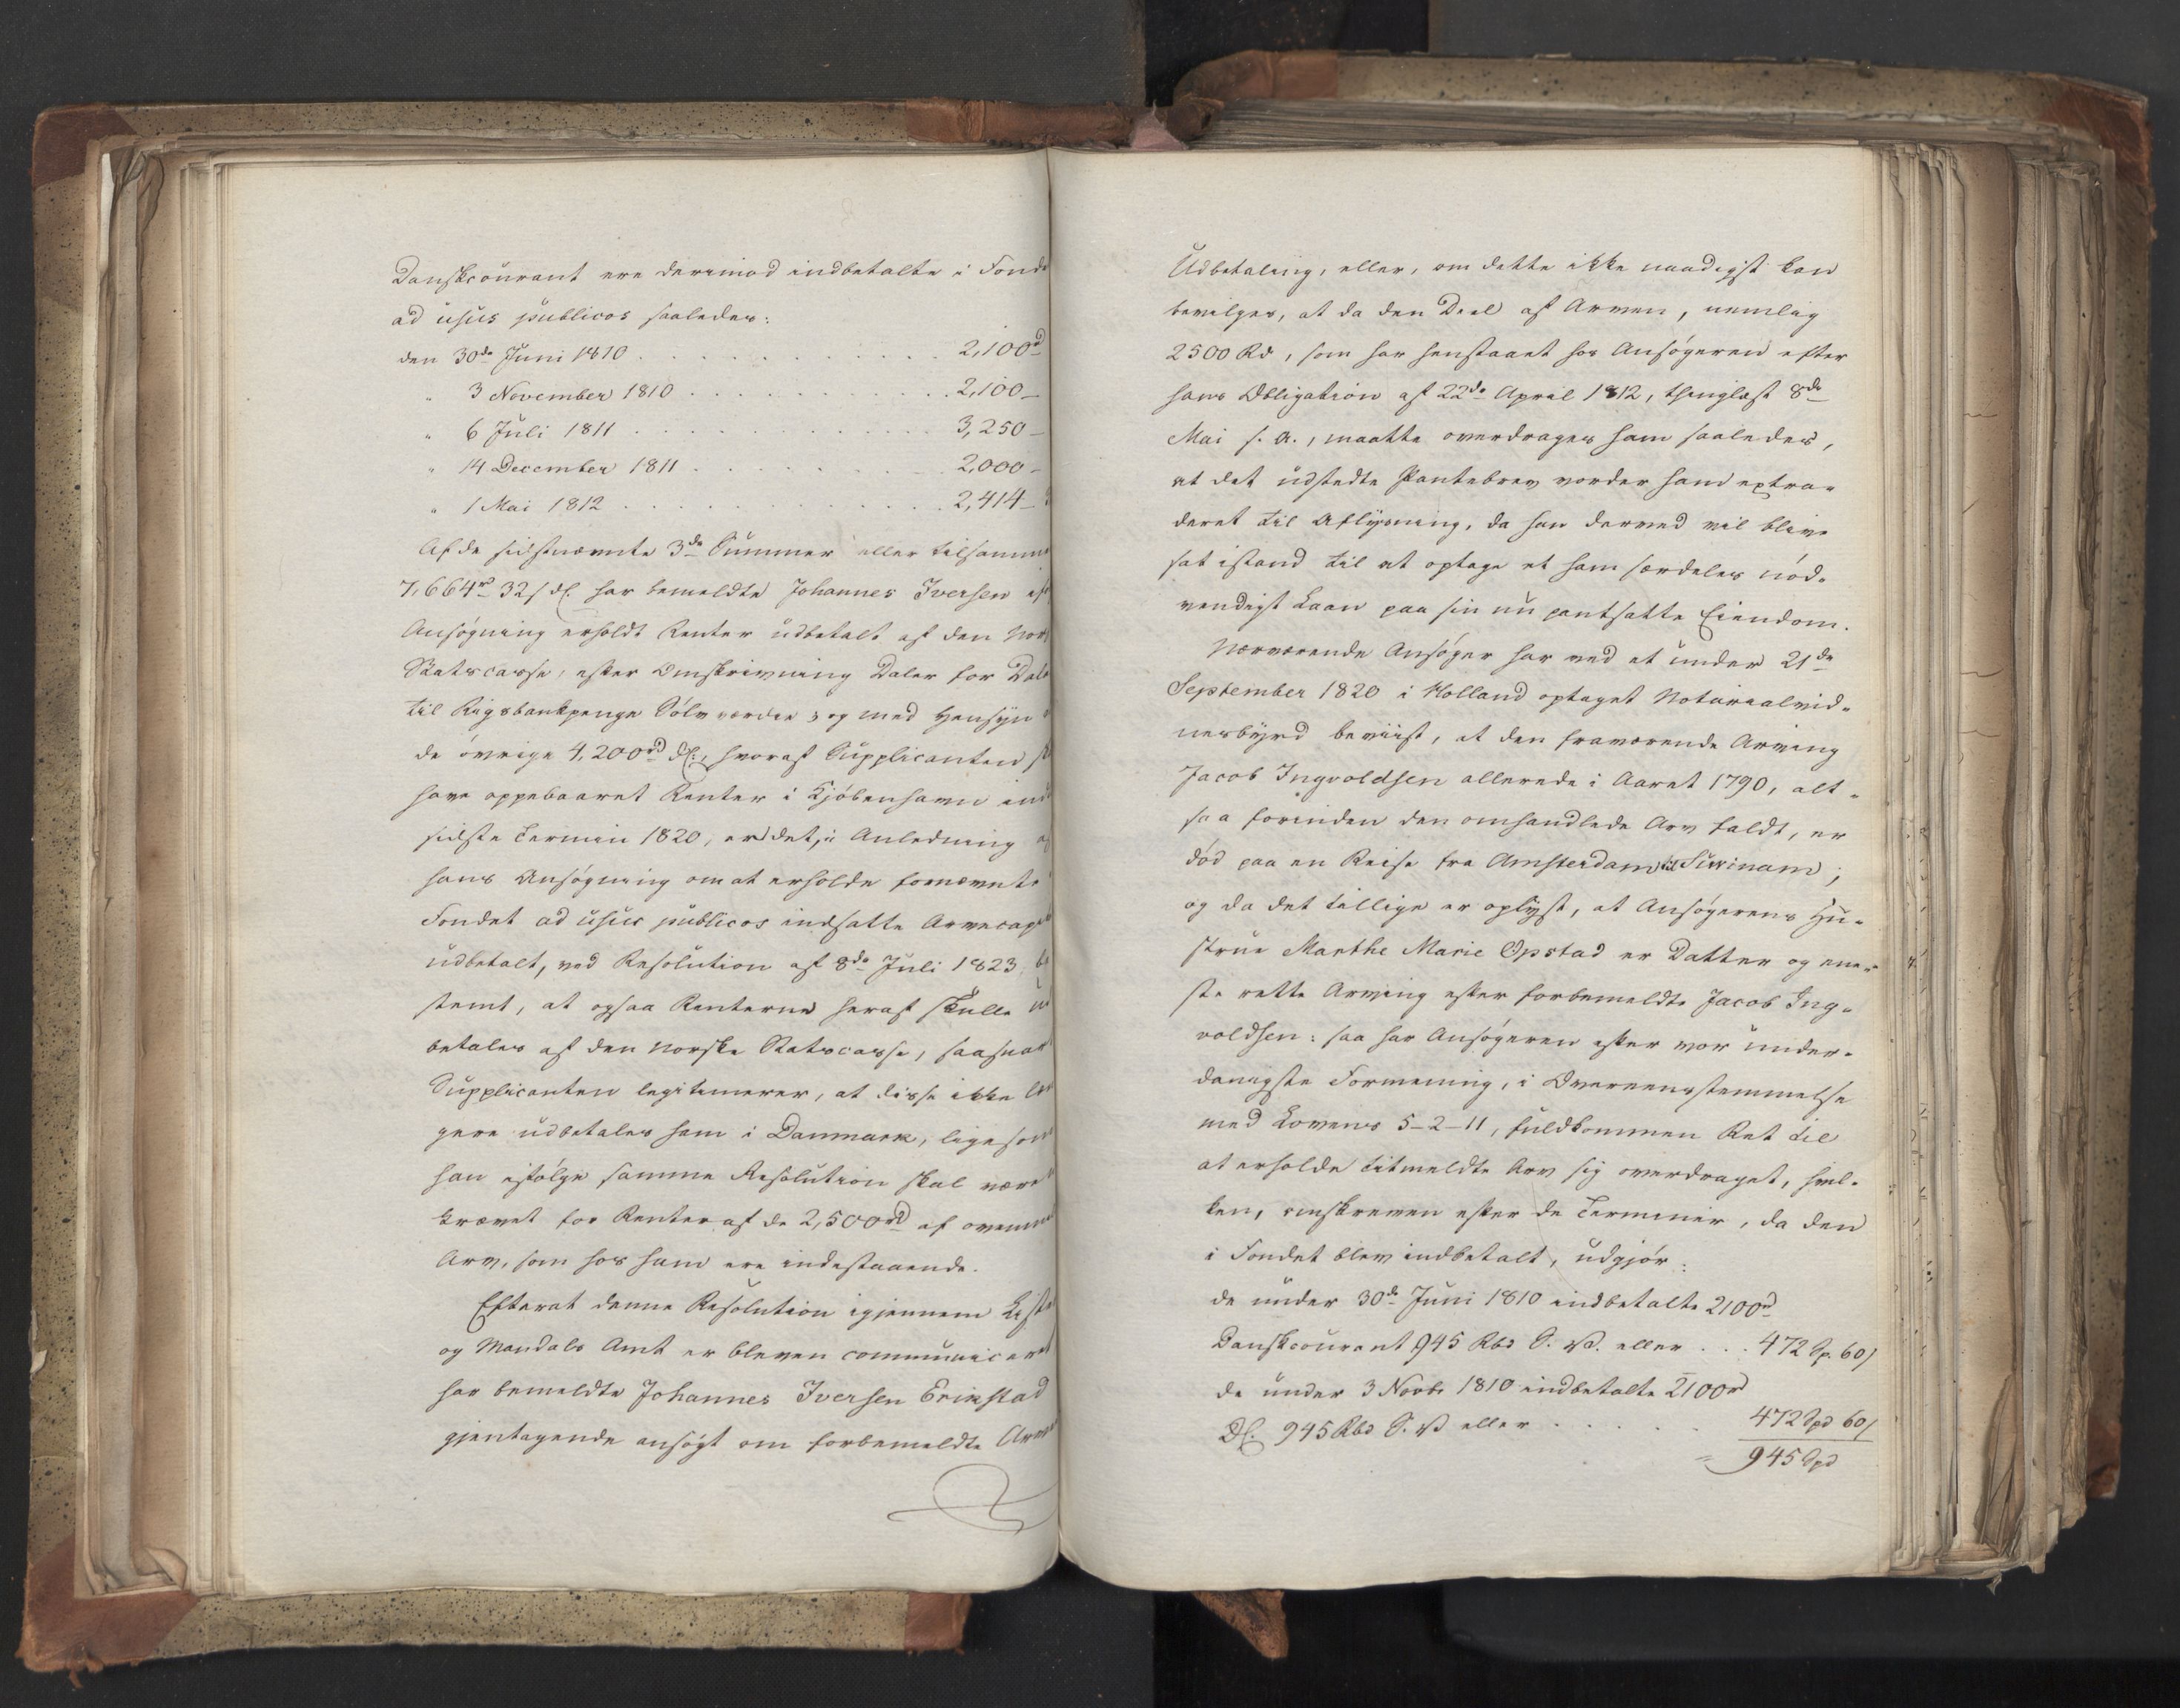 Danskcourant ere derimod indbetalte i Fonde
ad usus publicos saaledes:
den 30de Juni 1810 . . . . . . . . . . . . 2,100rd
" 3 November 1810 . . . . . . . . . . 2,100 –
" 6 Juli 1811 . . . . . . . . . . . . 3,250 –
" 14 December 1811 . . . . . . . . . 2,000 –
" 1 Mai 1812 . . . . . . . . . . . . . 2,414 –
Af de sidstnævnte 3de Summer eller tilsamme
7,664rd 32 s dC har bemeldte Johannes Iversen eft
Ansøgning erholdt Renter udbetalt af den Nors
Statscasse, efter Omskrivning Daler for Dale
til Rigsbankpenge Sølvværdie, og med Hensyn
de øvrige 4,200rd dC:, hvoraf Supplicanten s
have oppebaaret Renter i Kjøbenhavn ind
sidste Termin 1820, er det, i Anledning af
hans Ansøgning om at erholde fornævnte
Fondet ad usus publicos indsatte Arvecap
udbetalt, ved Resolution af 8de Juli 1823 be
stemt, at ogsaa Renterne heraf skulle ud
betales af den norske Statscasse, saasnart
Supplicanten legitimerer, at disse ikke læn
gere udbetales ham i Danmark, ligesom
han ifølge samme Resolution skal være
krævet for Renter af de 2,500rd af ovenn
Arv, som hos ham ere indestaaende.
Efterat denne Resolution igjennem Liste
og Mandals Amt er bleven communiceret
har bemeldte Johannes Iversen Erikstad
gjentagende ansøgt om forbemeldte Arve
Udbetaling, eller, om dette ikke naadigst kan
bevilges, at da den Deel af Arven, nemlig
2500 Rd, som har henstaaet hos Ansøgeren efter
hans Obligation af 22de April 1812, thinglæst 8de
Mai s. A., maatte overdrages ham saaledes,
at det udstedte Pantebrev vorder ham extra-
deret til Aflysning, da han derved vil blive
sat istand til at optage et ham særdeles nød-
vendigt Laan paa sin nu pantsatte Eiendom.
Nærværende Ansøger har ved et under 21de
September 1820 i Holland optaget Notarialvid-
nesbyrd beviist, at den fraværende Arving
Jacob Ingvoldsen allerede i Aaret 1790, alt-
saa forinden den omhandlede Arv faldt, er
død paa en Reise fra Amsterdam til Surinam;
og da det tillige er oplyst, at Ansøgerens Hu-
strue Marthe Marie Opstad er Datter og ene-
ste rette Arving efter forbemeldte Jacob Ing-
voldsen: saa har Ansøgeren efter vor under-
danigste Formening, i Overeensstemmelse
med Lovens 5-2-11, fuldkommen Ret til
at erholde titmeldte Arv sig overdraget, hvil-
ken, omskreven efter de Terminer, da den
i Fondet blev indbetalt, udgjør:
de under 30de Juni 1810 indbetalte 2100rd
Danskcourant 945 Rbd S. V. eller . . . 472 Sp. 60 s
de under 3 Novbr 1810 indbetalte 2100rd
dC. 945 Rbd S. V eller . . . . . 472 Spd 60 s
= 945 Spd